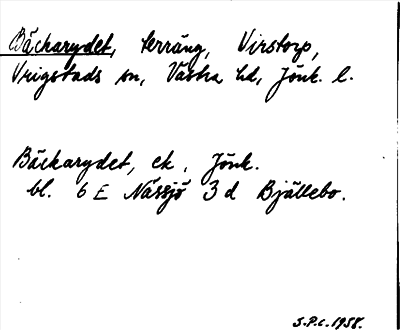 Bäckarydet, terräng, Virstorp,
Vrigstads sn, Västra hd, Jönk. l.
Bäckarydet, ek, Jönk.
bl. 6 E Nässjö 3 d Bjällebo.
S.P.C. 1958.